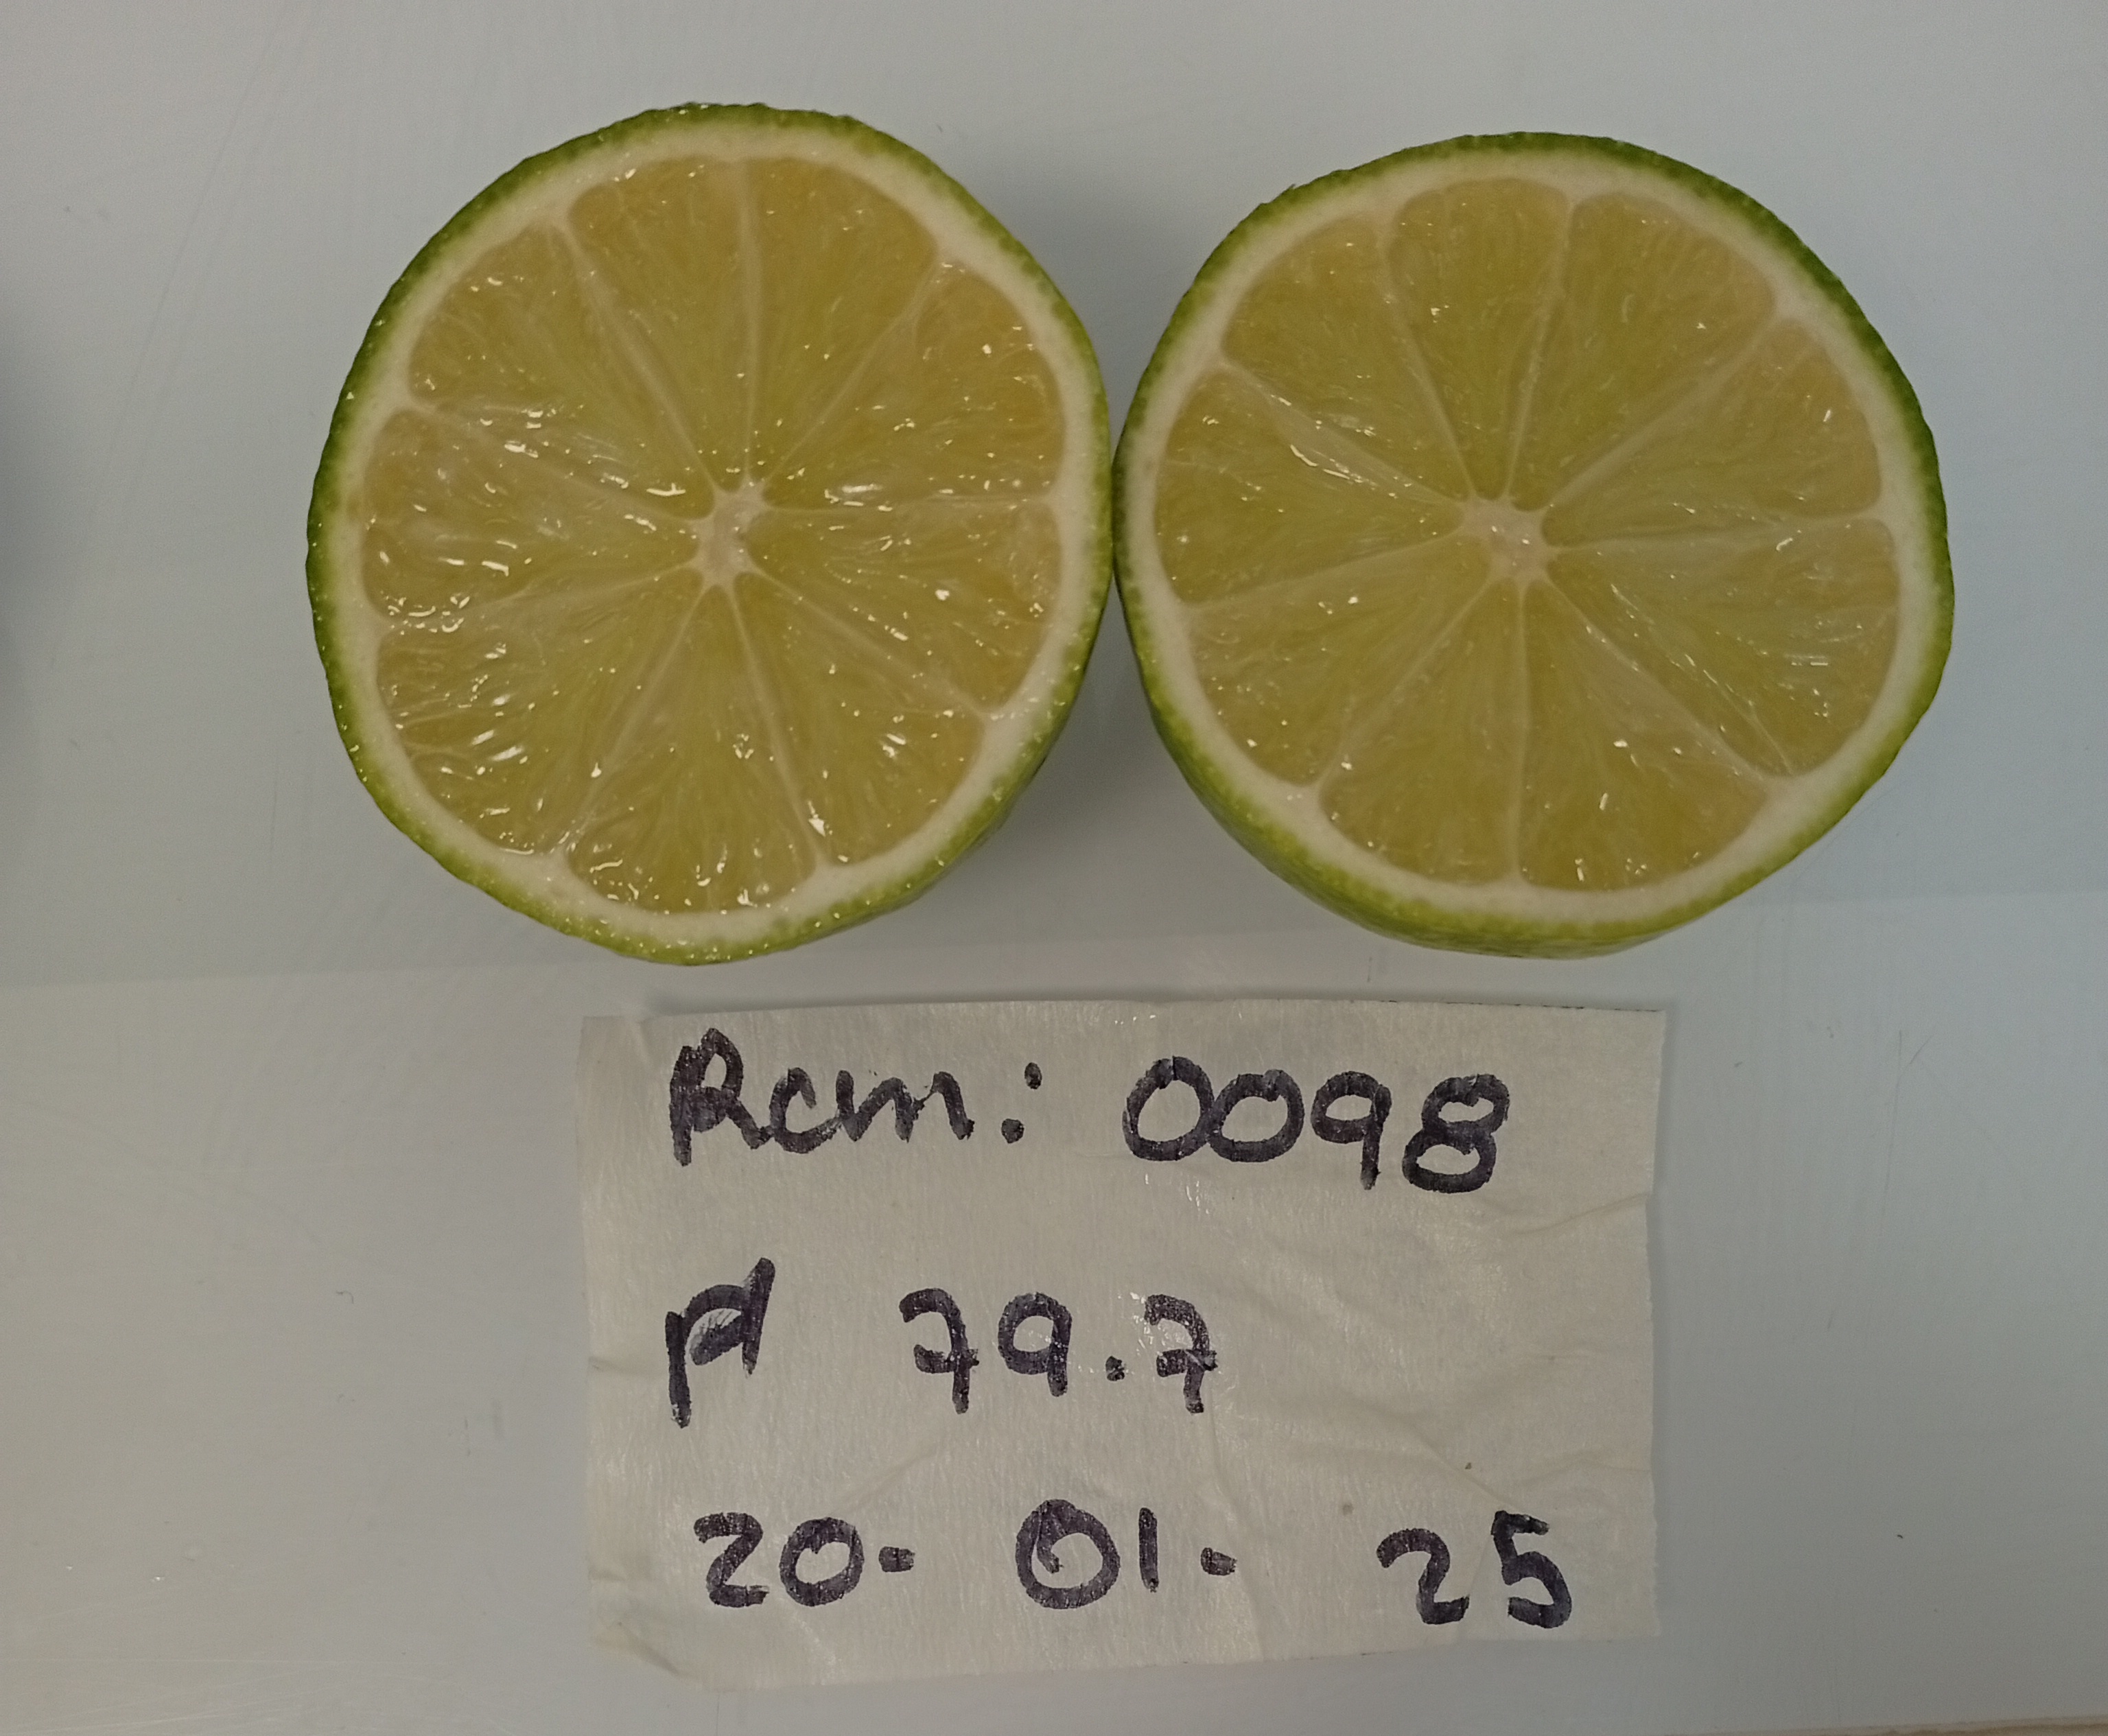 Rcm: 0098
pl 79.7
20. 01. 25